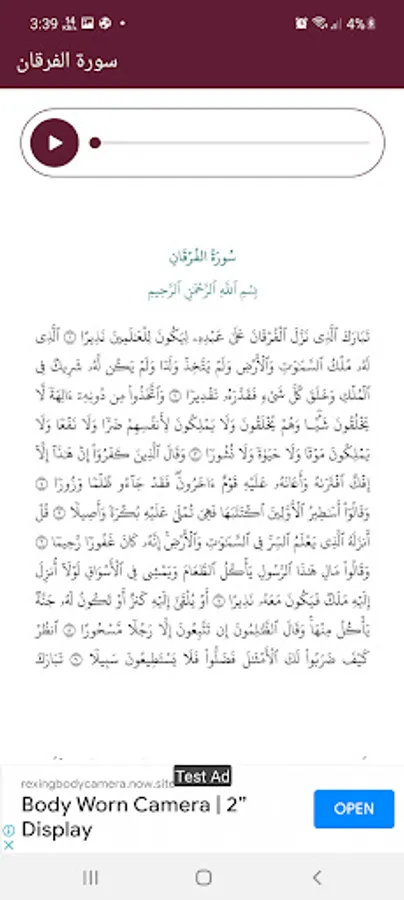 3:39
4%
سورة الفرقان
سُورَةُ الفُرْقَانِ
بِسْمِ ٱللَّهِ ٱلرَّحْمَٰنِ ٱلرَّحِيمِ
تَبَارَكَ ٱلَّذِى نَزَّلَ ٱلْفُرْقَانَ عَلَىٰ عَبْدِهِۦ لِيَكُونَ لِلْعَٰلَمِينَ نَذِيرًا ۝ ٱلَّذِى
لَهُۥ مُلْكُ ٱلسَّمَٰوَٰتِ وَٱلْأَرْضِ وَلَمْ يَتَّخِذْ وَلَدًا وَلَمْ يَكُن لَّهُۥ شَرِيكٌ فِى
ٱلْمُلْكِ وَخَلَقَ كُلَّ شَىْءٍ فَقَدَّرَهُۥ تَقْدِيرًا ۝ وَٱتَّخَذُوا۟ مِن دُونِهِۦٓ ءَالِهَةً لَّا
يَخْلُقُونَ شَيْـًٔا وَهُمْ يُخْلَقُونَ وَلَا يَمْلِكُونَ لِأَنفُسِهِمْ ضَرًّا وَلَا نَفْعًا وَلَا
يَمْلِكُونَ مَوْتًا وَلَا حَيَوٰةً وَلَا نُشُورًا ۝ وَقَالَ ٱلَّذِينَ كَفَرُوٓا۟ إِنْ هَٰذَآ إِلَّآ
إِفْكٌ ٱفْتَرَىٰهُ وَأَعَانَهُۥ عَلَيْهِ قَوْمٌ ءَاخَرُونَ ۖ فَقَدْ جَآءُو ظُلْمًا وَزُورًا ۝
وَقَالُوٓا۟ أَسَٰطِيرُ ٱلْأَوَّلِينَ ٱكْتَتَبَهَا فَهِىَ تُمْلَىٰ عَلَيْهِ بُكْرَةً وَأَصِيلًا ۝ قُلْ
أَنزَلَهُ ٱلَّذِى يَعْلَمُ ٱلسِّرَّ فِى ٱلسَّمَٰوَٰتِ وَٱلْأَرْضِ ۚ إِنَّهُۥ كَانَ غَفُورًا رَّحِيمًا ۝
وَقَالُوا۟ مَالِ هَٰذَا ٱلرَّسُولِ يَأْكُلُ ٱلطَّعَامَ وَيَمْشِى فِى ٱلْأَسْوَاقِ ۙ لَوْلَآ أُنزِلَ
إِلَيْهِ مَلَكٌ فَيَكُونَ مَعَهُۥ نَذِيرًا ۝ أَوْ يُلْقَىٰٓ إِلَيْهِ كَنزٌ أَوْ تَكُونُ لَهُۥ جَنَّةٌ
يَأْكُلُ مِنْهَا ۚ وَقَالَ ٱلظَّٰلِمُونَ إِن تَتَّبِعُونَ إِلَّا رَجُلًا مَّسْحُورًا ۝ ٱنظُرْ
كَيْفَ ضَرَبُوا۟ لَكَ ٱلْأَمْثَٰلَ فَضَلُّوا۟ فَلَا يَسْتَطِيعُونَ سَبِيلًا ۝ تَبَارَكَ
Test Ad
rexingbodycamera.now.site
Body Worn Camera | 2"
Display
OPEN